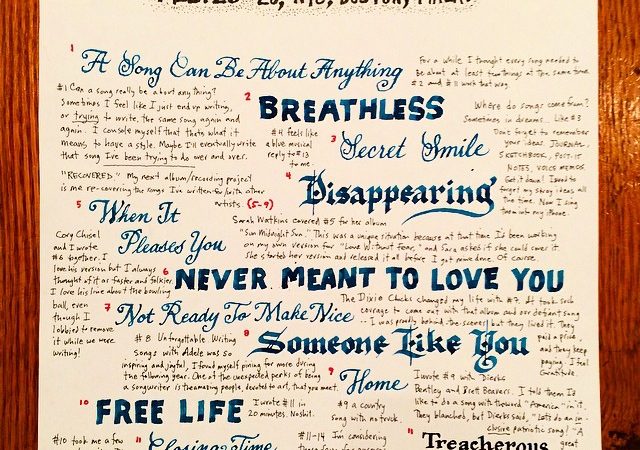 1
A Song Can Be About Anything
For a while I thought every song needed to
be about at least two things at the same time.
#2 and #11 work that way.
#1 Can a song really be about anything?
Sometimes I feel like I just end up writing,
or trying to write, the same song again and
again. I console myself that that's what it
means to have a style. Maybe I'll eventually write
that song I've been trying to do over and over.
2
BREATHLESS
#4 feels like
a live musical
reply to #13
to me.
Where do songs come from?
Sometimes in dreams... Like #3
Don't forget to remember
your ideas. JOURNAL,
SKETCHBOOK, POST-IT
NOTES, VOICE MEMOS.
Get it down! I used to
forget my story ideas all
the time. Now I sing
them into my phone.
3
Secret Smile
"RECOVERED" My next album/recording project
is me re-covering the songs I've written for/with other
artists (5-9)
4
Disappearing
5
When It
Pleases You
Sara Watkins covered #5 for her album
"Sun Midnight Sun." This was a unique situation because at that time I'd been working
on my own version for "Love Without Fear," and Sara asked if she could cover it.
She started her version and released it all before I got mine done. Of course.
Cory Chisel
and I wrote
#6 together. I
love his version but I always
thought of it as faster and folkier.
I love his line about the bowling
ball, even
though I
lobbied to remove
it while we were
writing!
6
NEVER MEANT TO LOVE YOU
7
Not Ready To Make Nice
The Dixie Chicks changed my life with #7. It took such
courage to come out with that album and our defiant song
... I was proudly behind the scenes, but they lived it. They
paid a price
and they keep
paying. I feel
Gratitude.
8
Someone Like You
#8 Unforgettable. Writing
songs with Adele was so
inspiring and joyful, I found myself pining for more during
the following year. One of the unexpected perks of being
a songwriter is the amazing people, devoted to art, that you meet.
9
Home
I wrote #9 with Dierks
Bentley and Brett Beavers. I told them I'd
like to do a song with the word "America" in it.
They blanched, but Dierks said, "Let's do an in-
clusive patriotic song!" A
great
10
FREE LIFE
I wrote #11 in
20 minutes. No shit.
#9 a country
song with no truck.
#10 took me a few
11
Closing Time
#11-14 I'm considering
11
Treacherous